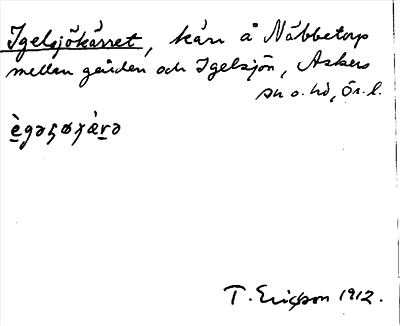 Igelsjökärret, kärr å Näbbetorp
mellan gården och Igelsjön, Askers
sn o. hd, Ör. l.
ègəʂøχæ̀rə
T. Ericsson 1912.